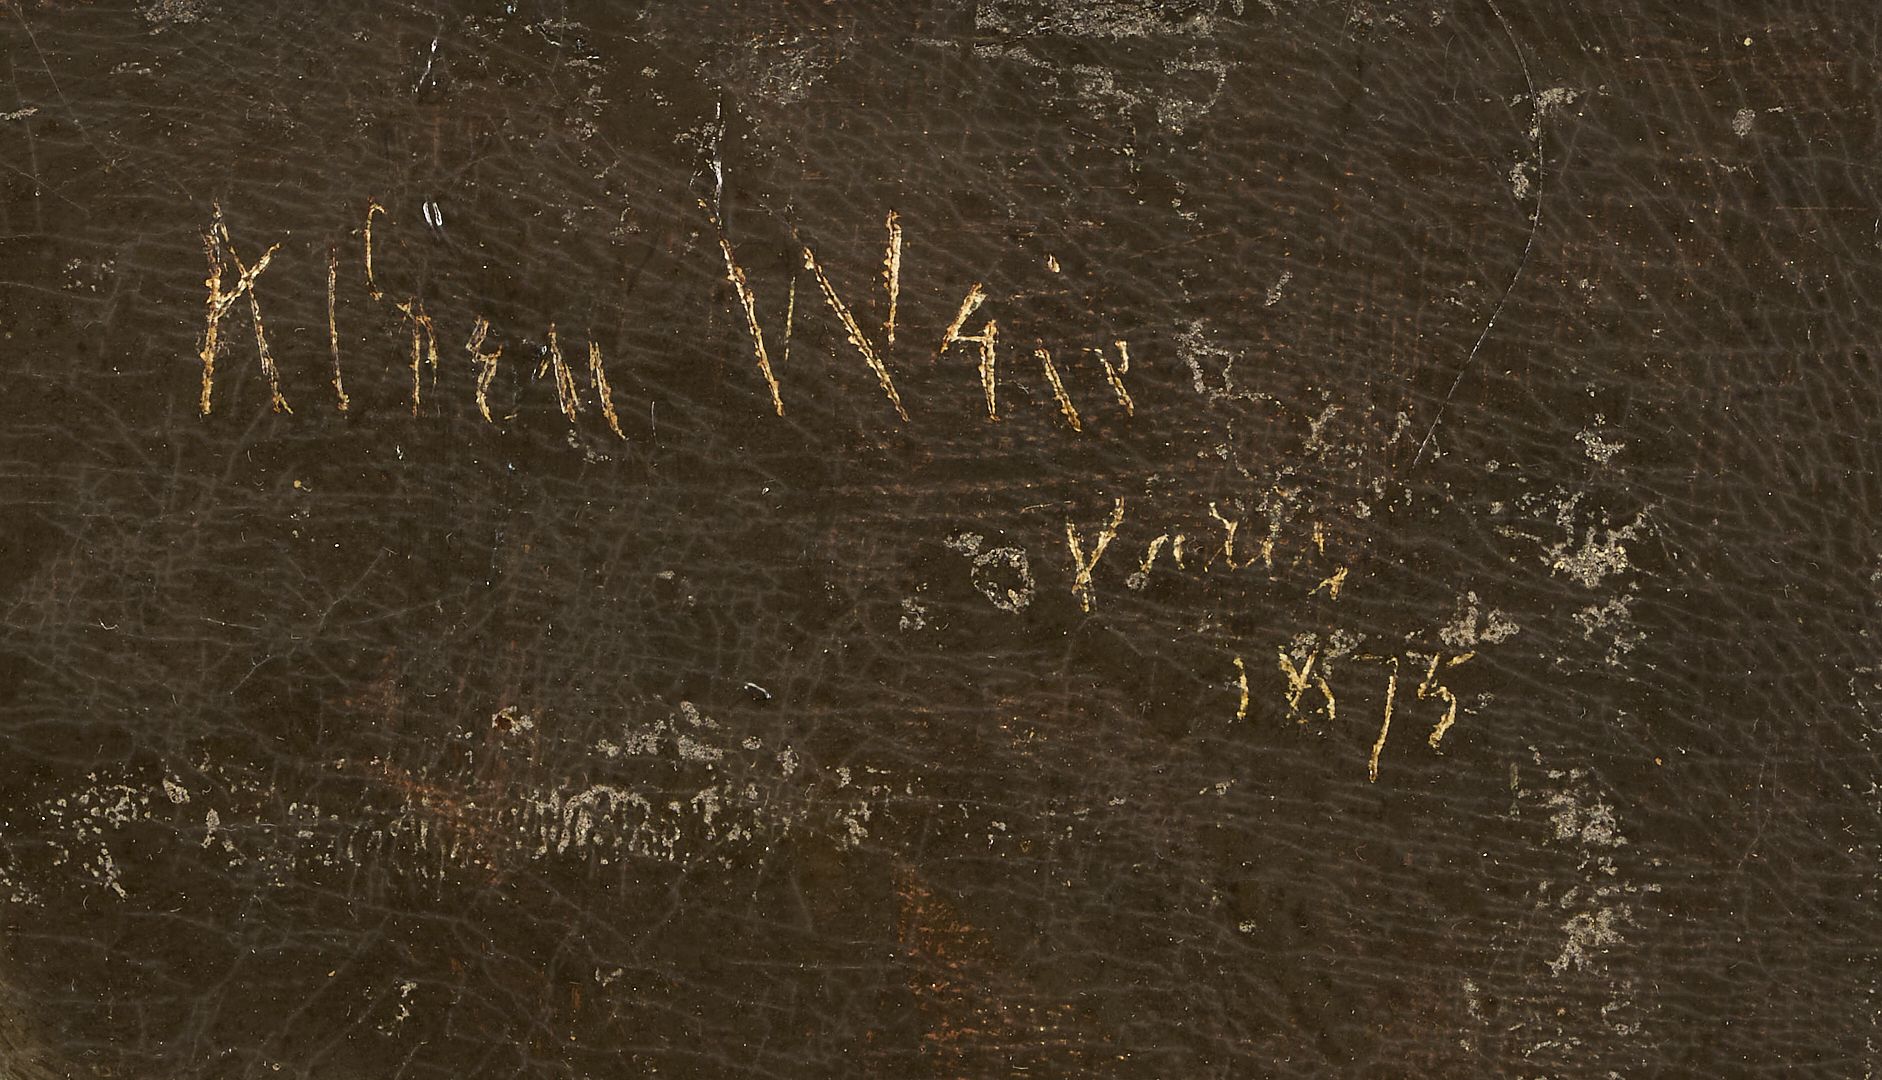 Alden Weir
Paris
1875